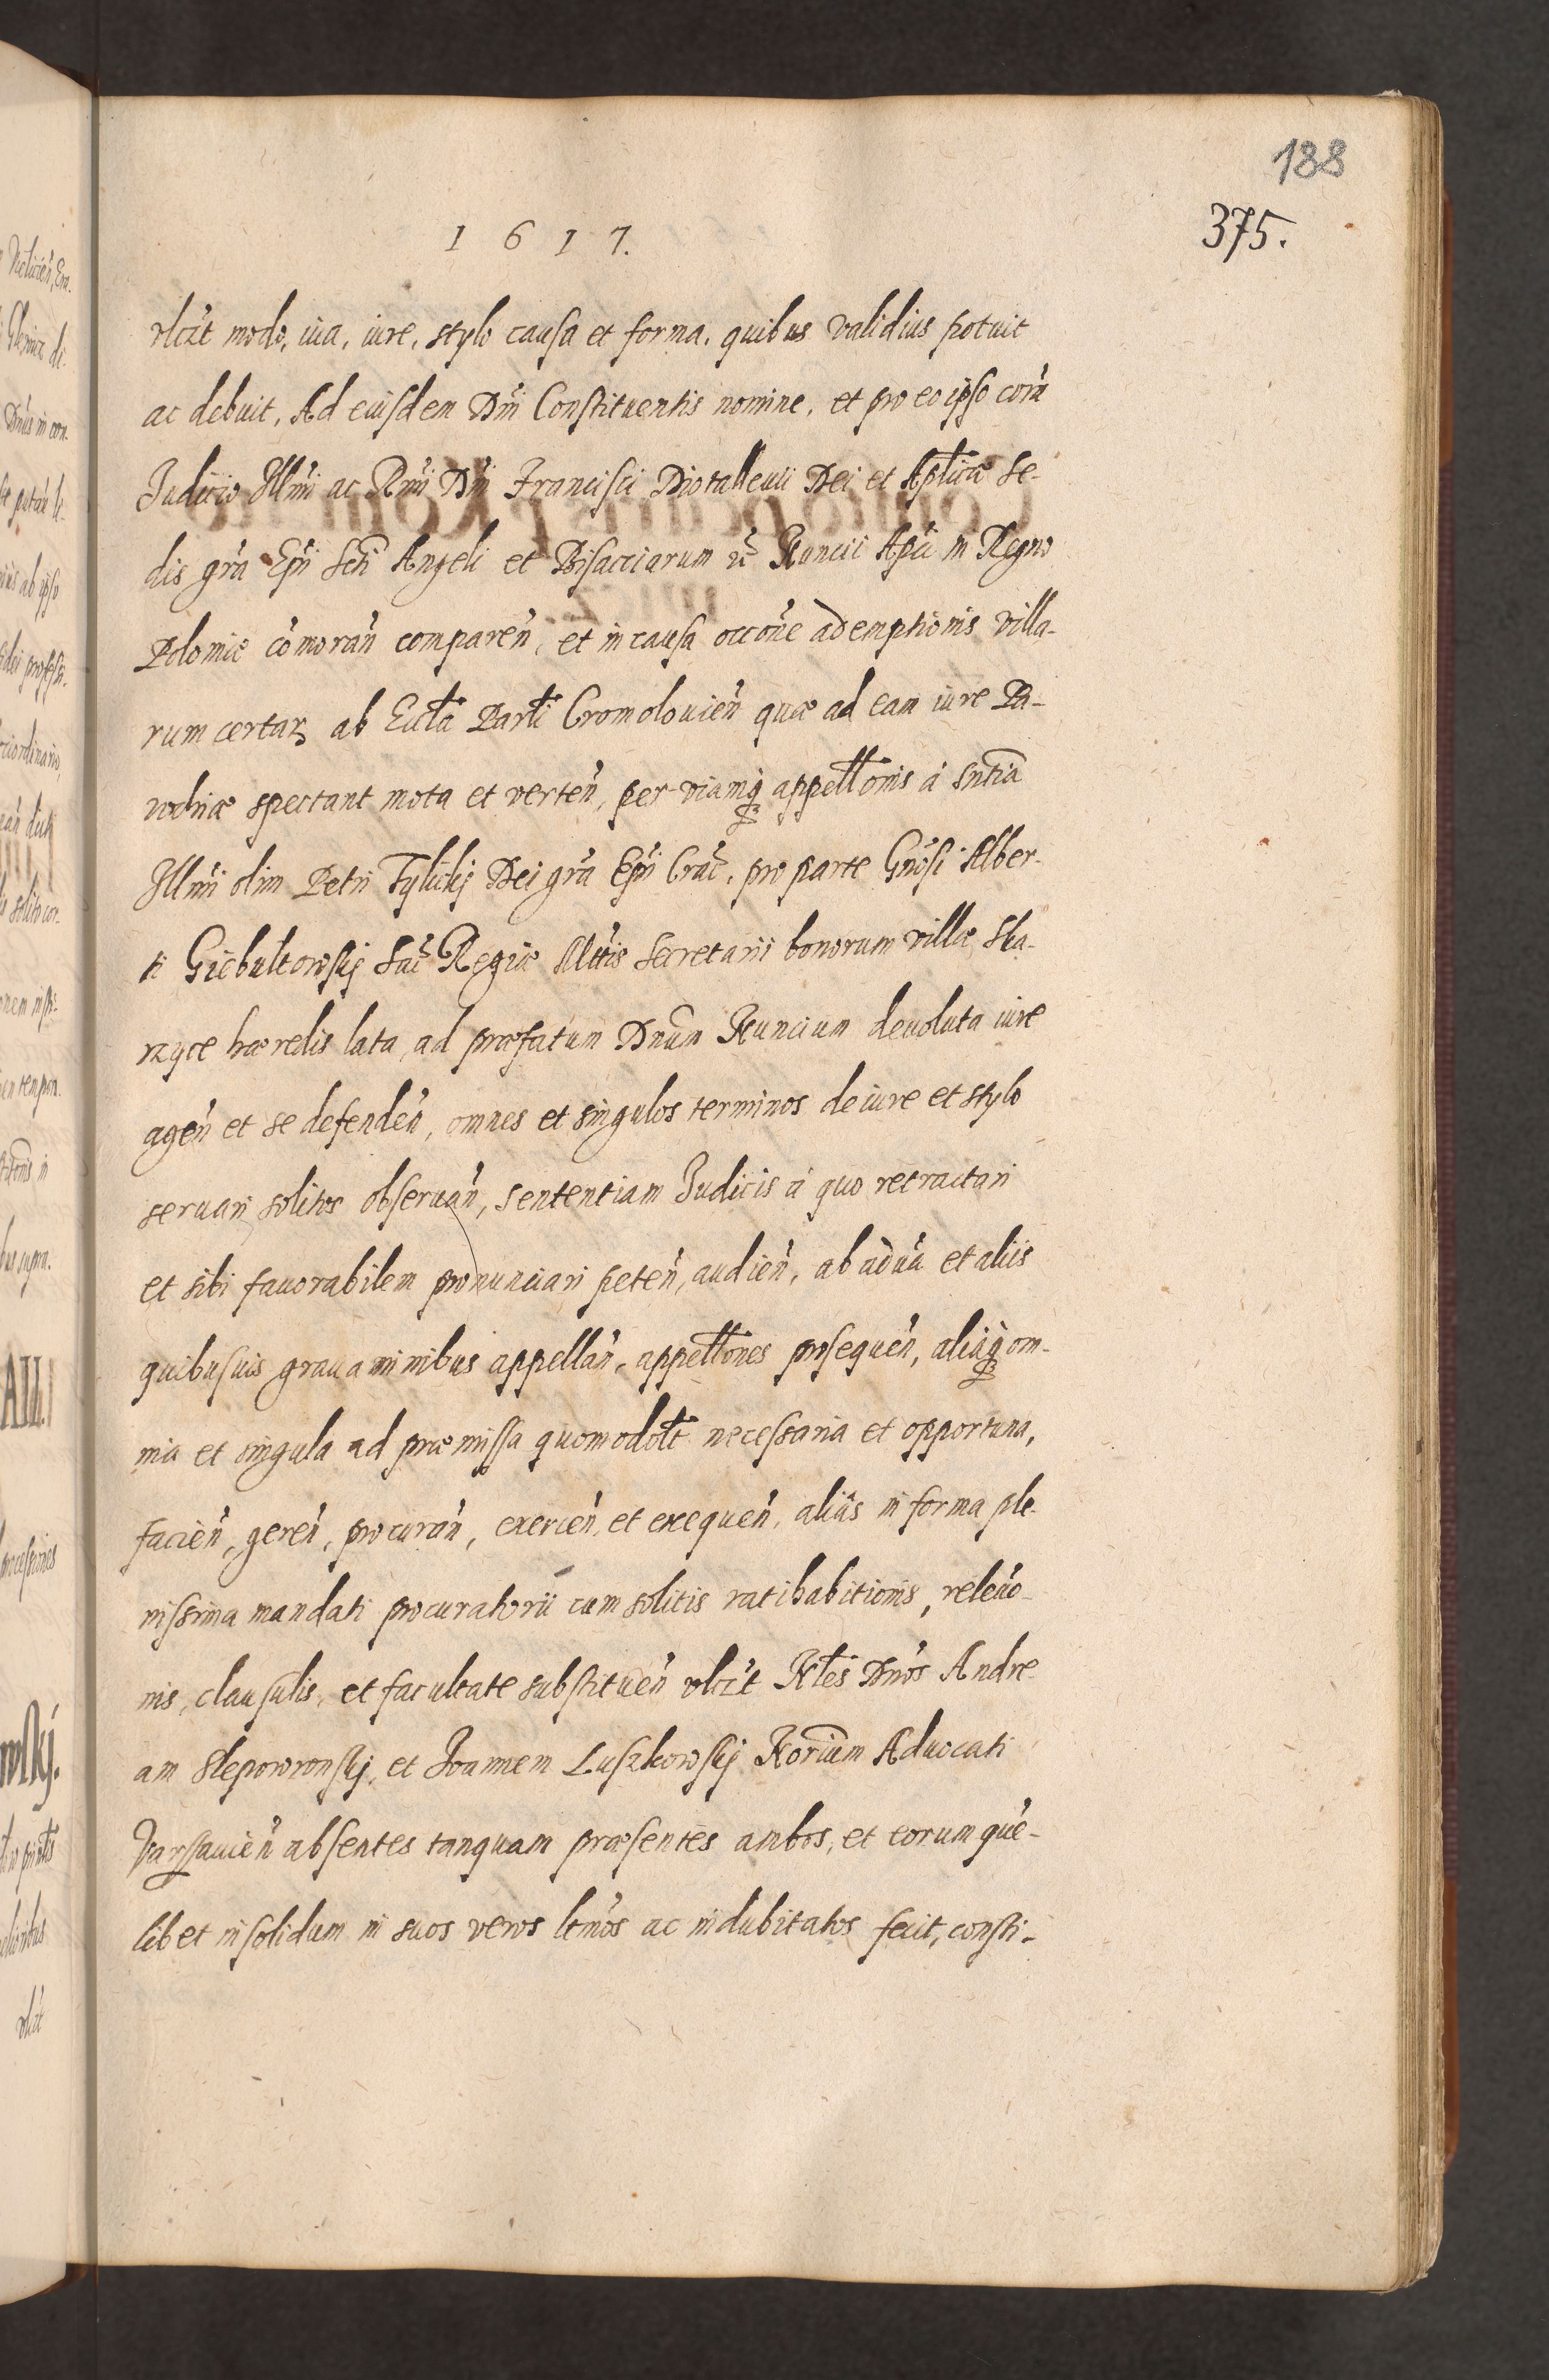 188
375.
1617.
vlczt modo, via, iure, stylo causa et forma, quibus validius potuit
ac debuit, Ad eiusdem Dni Constituentis nomine, et pro eo ipso corã
Iudicio Illmi ac Rmi Dni Francisci Diotalleuii Dei et Aplicæ Se-
dis gra Epi Scti Angeli et Bisacciarum Nuncii Aplici in Regno
Poloniæ comorań compareń, et in causa occone ademptionis villa-
rum certar. ab Eccla Parli Cromolouień quæ ad eam iure Pa-
rochiæ spectant mota et verteń, per viamq appellonis à sntia
Illmi olim Petri Tylickj Dei gra Epi Crac. pro parte Gnosi Alber-
ti Giebultowskj Sac Regiæ Mttis Secretarii bonorum villæ Ska-
rzyce hæredis lata, ad præfatum Dnum Nuncium deuoluta iure
ageń et se defendeń, omnes et singulos terminos de iure et stylo
seruari solitos obseruań, sententiam Iudicis à quo retractari
et sibi fauorabilem pronunciari peteń, audień, ab aduã et aliis
quibusuis grauaminibus appellań, appellones prosequeń, aliaq om-
nia et singula ad præmissa quomodolt necessaria et opportuna,
facień, gereń, procurań, exerceń, et exequeń, aliàs in forma ple-
nissima mandati procuratorii cum solitis ratihabitionis, releuo-
nis, clausulis, et facultate substitueń vlczt Nles Dnos Andre-
am Slepowronskj, et Ioannem Luszkowskj Norium Aduocati
Varsauień absentes tanquam præsentes ambos, et eorum que-
libet in solidum in suos veros ltmos ac indubitatos fecit, consti-